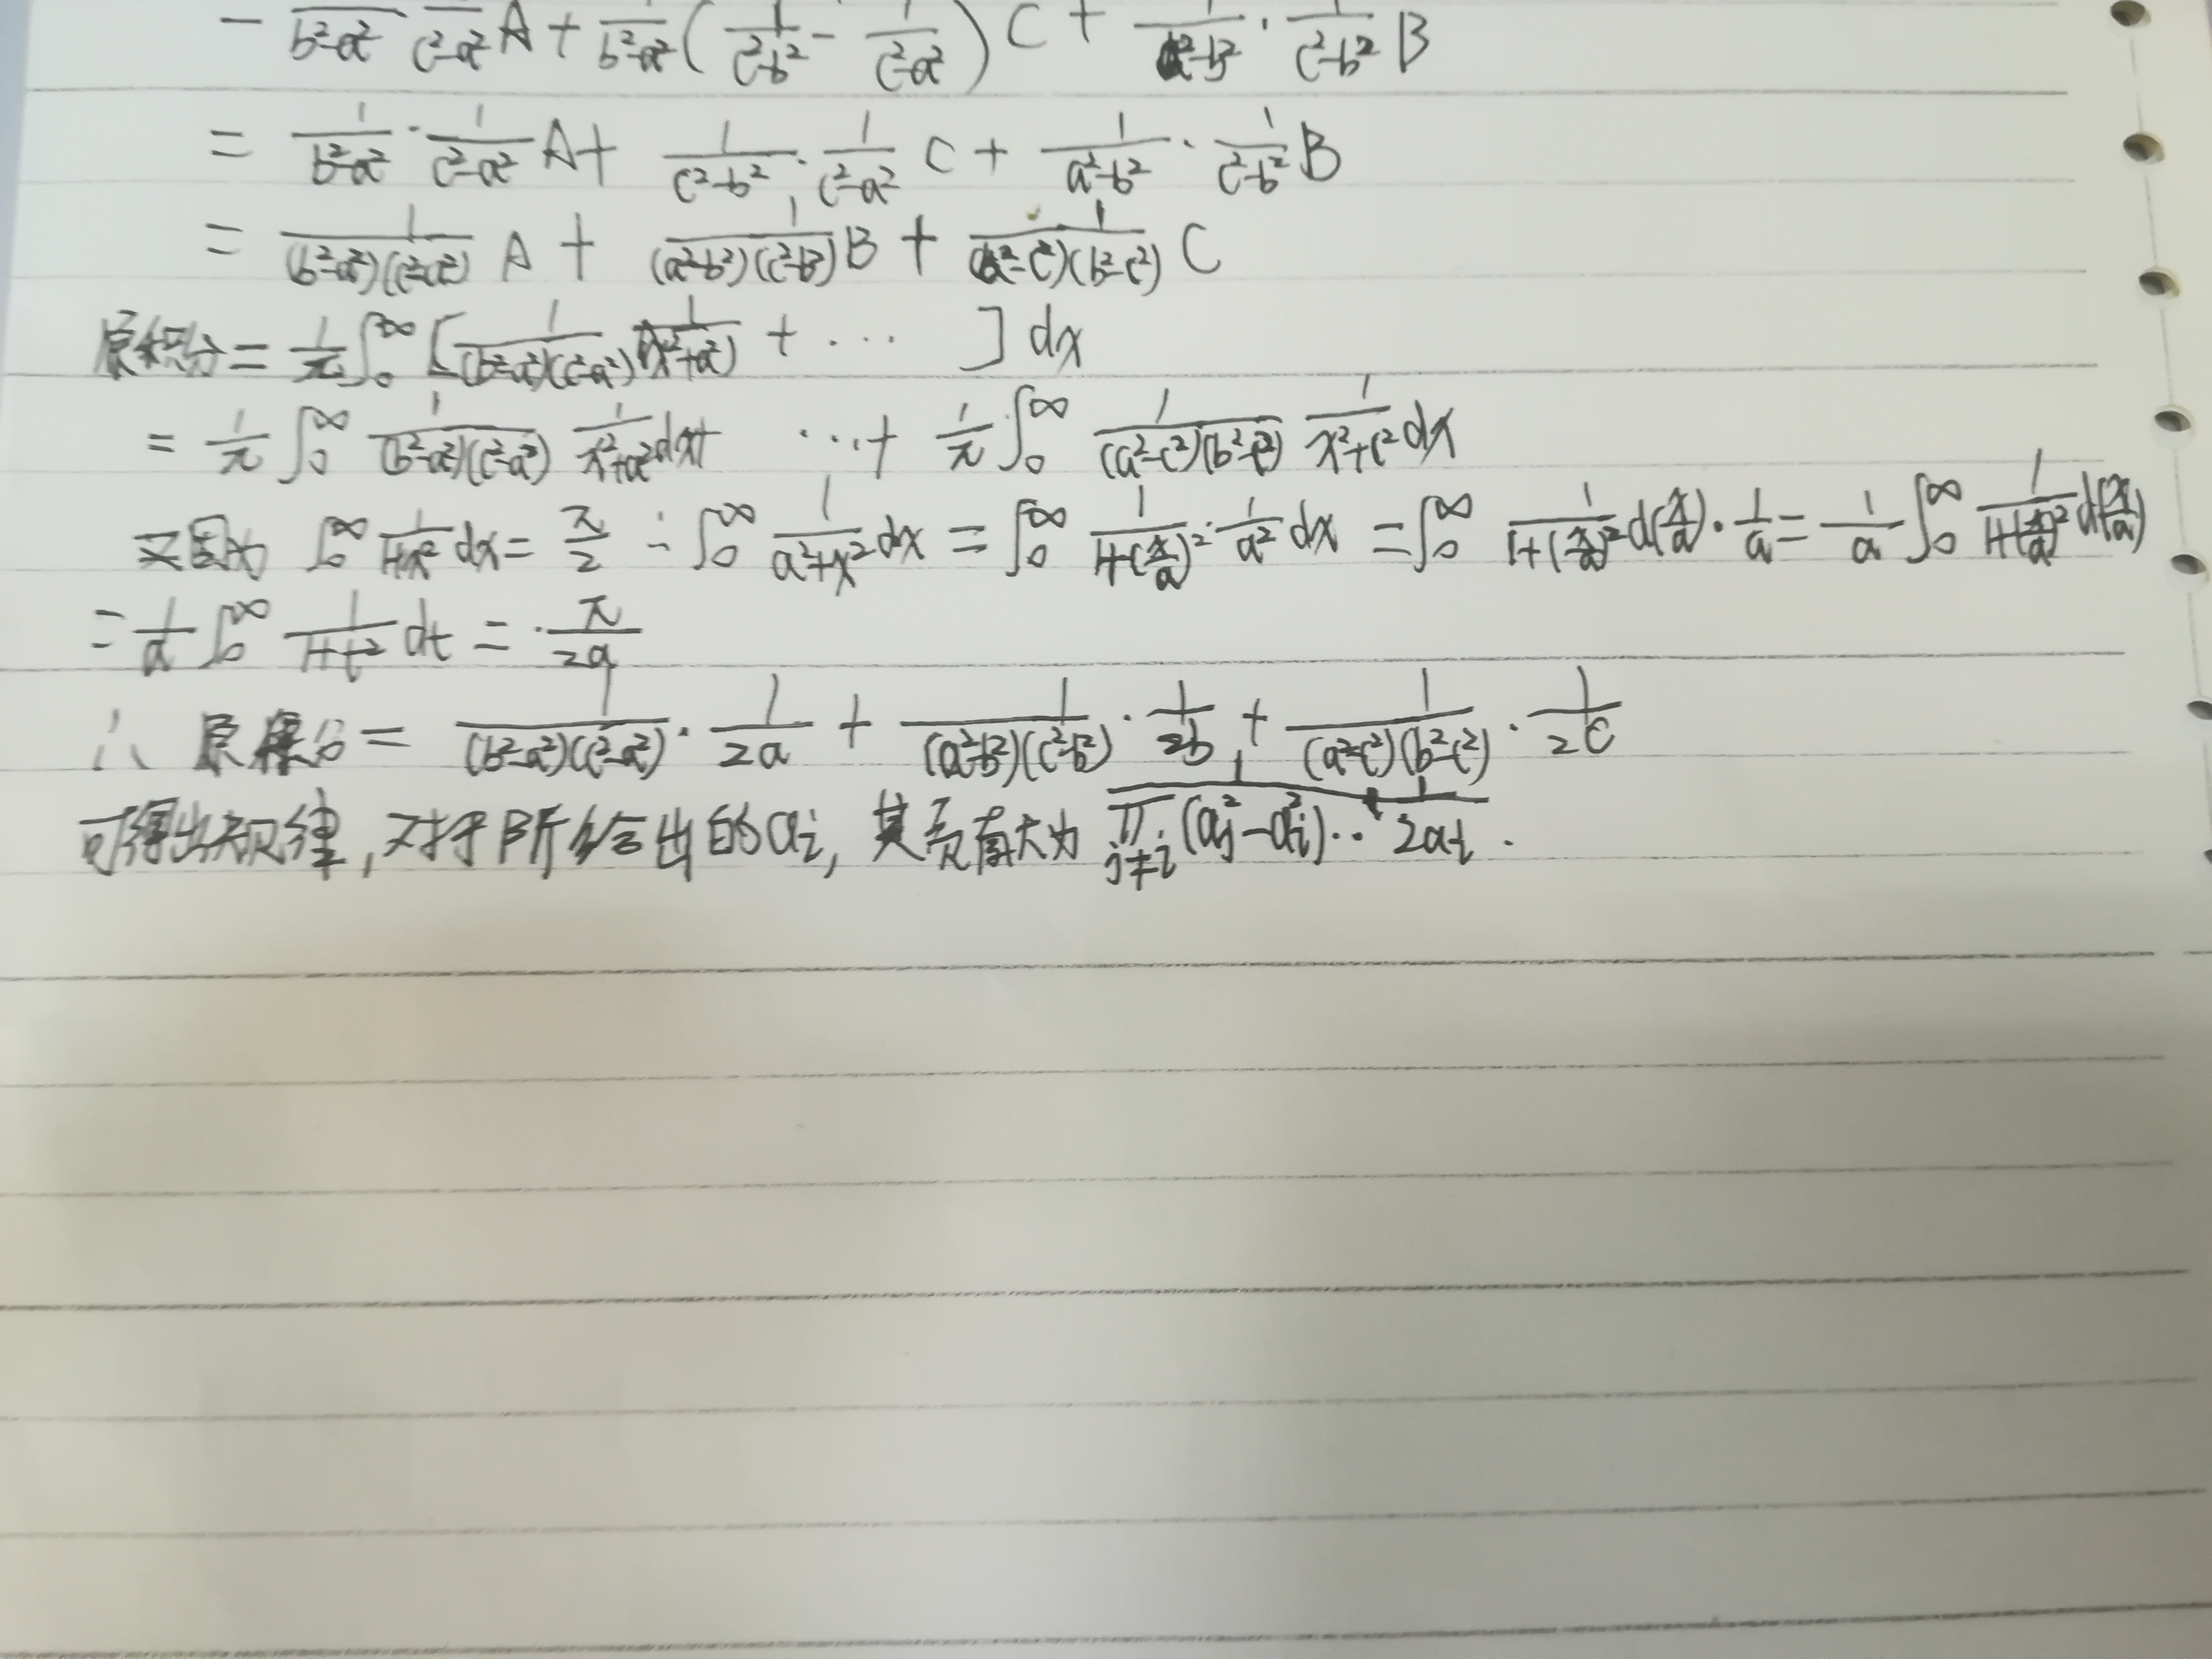 = 1/(b²-a²) 1/(c²-a²) A + 1/(b²-a²) ( 1/(c²-b²) - 1/(c²-a²) ) C + 1/(a²-b²) · 1/(c²-b²) B
= 1/(b²-a²) · 1/(c²-a²) A + 1/(c²-b²) · 1/(c²-a²) C + 1/(a²-b²) · 1/(c²-b²) B
= 1/((b²-a²)(c²-a²)) A + 1/((a²-b²)(c²-b²)) B + 1/((a²-c²)(b²-c²)) C
原积分 = 1/π ∫₀^∞ [ 1/((b²-a²)(c²-a²)) 1/(x²+a²) + ··· ] dx
= 1/π ∫₀^∞ 1/((b²-a²)(c²-a²)) 1/(x²+a²) dx + ··· + 1/π ∫₀^∞ 1/((a²-c²)(b²-c²)) 1/(x²+c²) dx
又因为 ∫₀^∞ 1/(1+x²) dx = π/2 ∴ ∫₀^∞ 1/(a²+x²) dx = ∫₀^∞ 1/(1+(x/a)²) · 1/a² dx = ∫₀^∞ 1/(1+(x/a)²) d(x/a) · 1/a = 1/a ∫₀^∞ 1/(1+(x/a)²) d(x/a)
= 1/a ∫₀^∞ 1/(1+t²) dt = π/2a
∴ 原积分 = 1/((b²-a²)(c²-a²)) · 1/2a + 1/((a²-b²)(c²-b²)) · 1/2b + 1/((a²-c²)(b²-c²)) · 1/2c
可得出规律, 对于所给出的aᵢ, 其贡献为 1/(∏_{j≠i} (aⱼ²-aᵢ²)) ·· 1/2aᵢ .